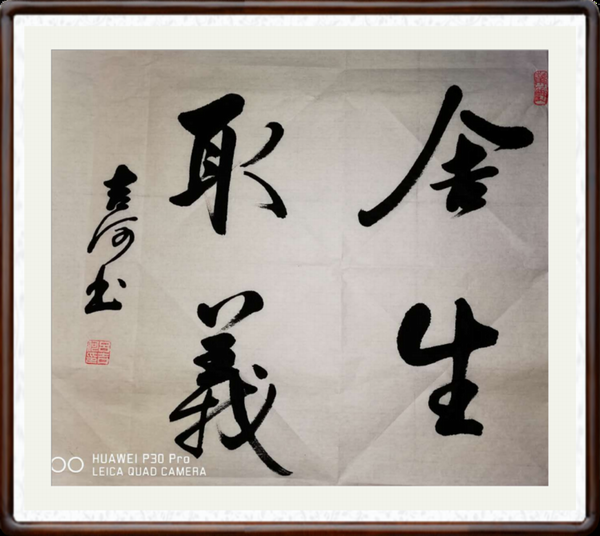 舍生
取義
吉河书
HUAWEI P30 Pro
LEICA QUAD CAMERA